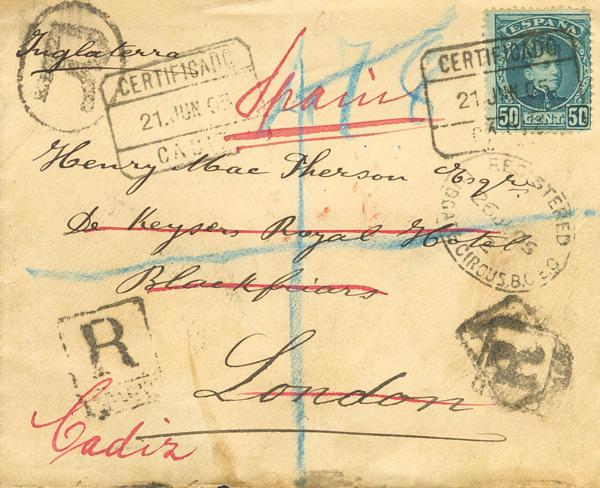 Inglaterra
R
CERTIFICADO
21 JUN 05
CADIZ
Spain
478
CERTIFICADO
21 JUN 05
ESPAÑA
50 CENT. 50
Henry Mac Pherson Esqre
De Keysers Royal Hotel
Blackfriars
London
REGISTERED
26 JU 05
LUDGATE CIRCUS. B.O. E.C.
R
R
Cadiz